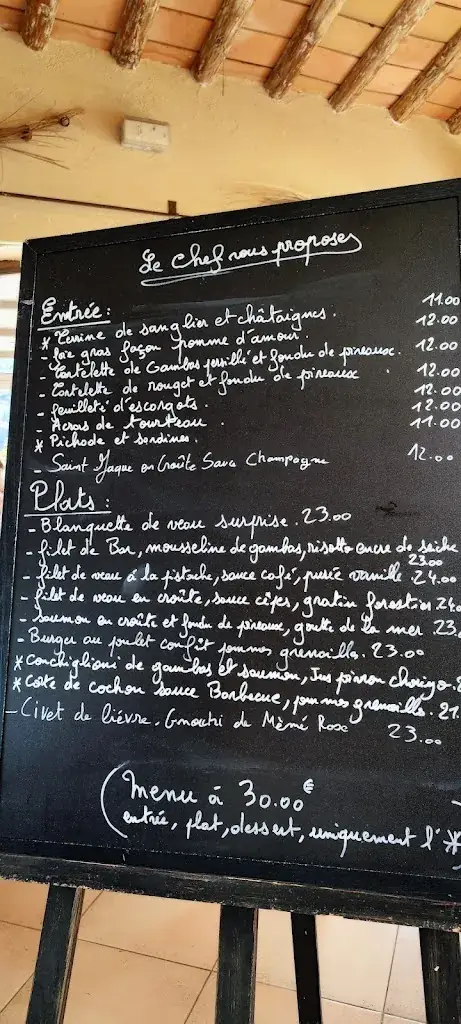 Le Chef vous proposes
Entrée :
* Terrine de sanglier et châtaignes. 11.00
- foie gras façon pomme d'amour. 12.00
- Tartelette de Gambas persillé et fondu de poireaux. 12.00
- Tartelette de rouget et fondu de poireaux. 12.00
- feuilleté d'escargots. 12.00
- Acras de tourteau. 12.00
* Pichade et sardines. 11.00
- Saint Jaque en Croûte Sauce Champagne 12.00
Plats :
- Blanquette de veau surprise. 23.00
- filet de Bar, mousseline de gambas, risotto encre de seiche 23.00
- filet de veau à la pistache, sauce café, purée vanille 24.00
- filet de veau en croûte, sauce cèpes, gratin forestier 24.0
- Saumon en croûte et fondu de poireaux, goutte de la mer 23.
- Burger au poulet confit pommes grenailles. 23.00
* Conchiglioni de gambas et saumon, Jus poivron chorizo.
* Côte de cochon sauce Barbecue, pommes grenaille. 21.
- Civet de lièvre. Gnocchi de Mèmé Rose 23.00
(Menu à 30.00€
entrée, plat, dessert, uniquement l' *